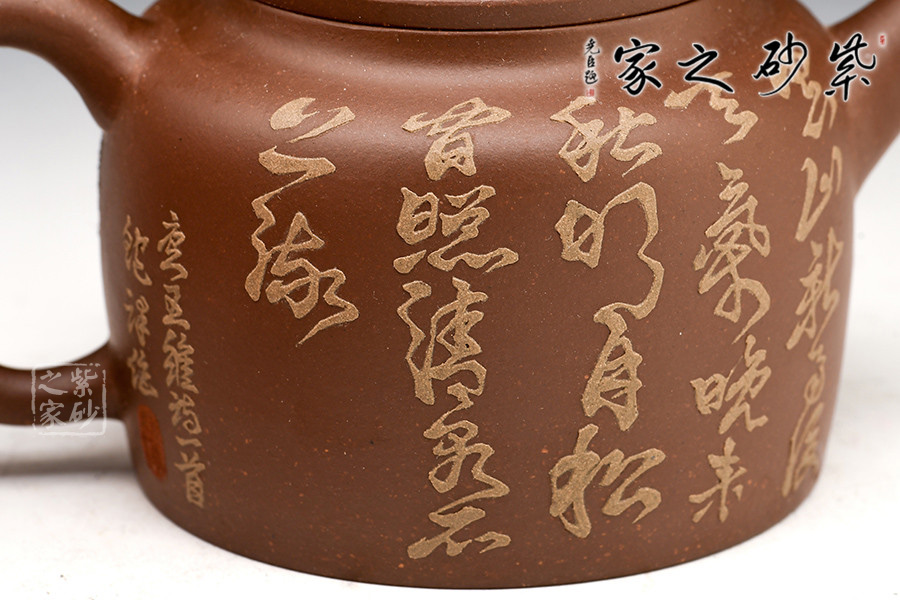 紫砂之家
空山新雨後
天氣晚来
秋明月松
間照清泉石
上流
唐王維詩一首
紫砂之家